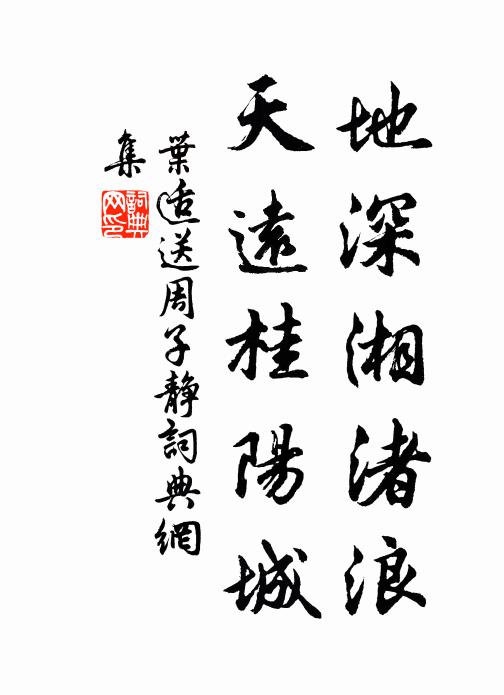 地深湘渚浪
天遠桂陽城
葉适送周子靜詞典網
集
詞典網印